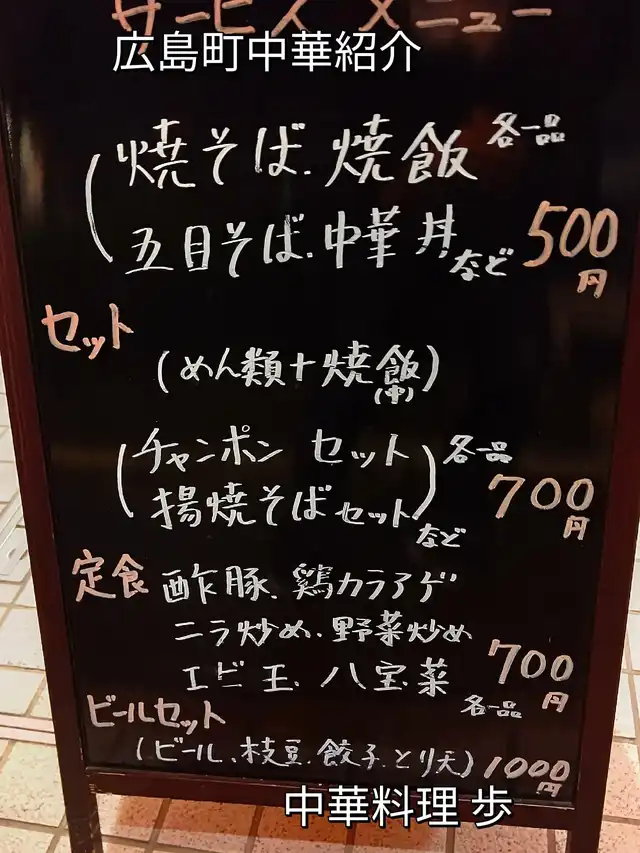 サービスメニュー
広島町中華紹介
焼そば.焼飯 各一品
五目そば.中華丼など 500円
セット
(めん類+焼飯(中))
チャンポン セット 各一品
揚焼そばセットなど 700円
定食 酢豚.鶏カラアゲ
ニラ炒め.野菜炒め
エビ玉.八宝菜 各一品 700円
ビールセット
(ビール、枝豆.餃子.とり天) 1000円
中華料理 歩